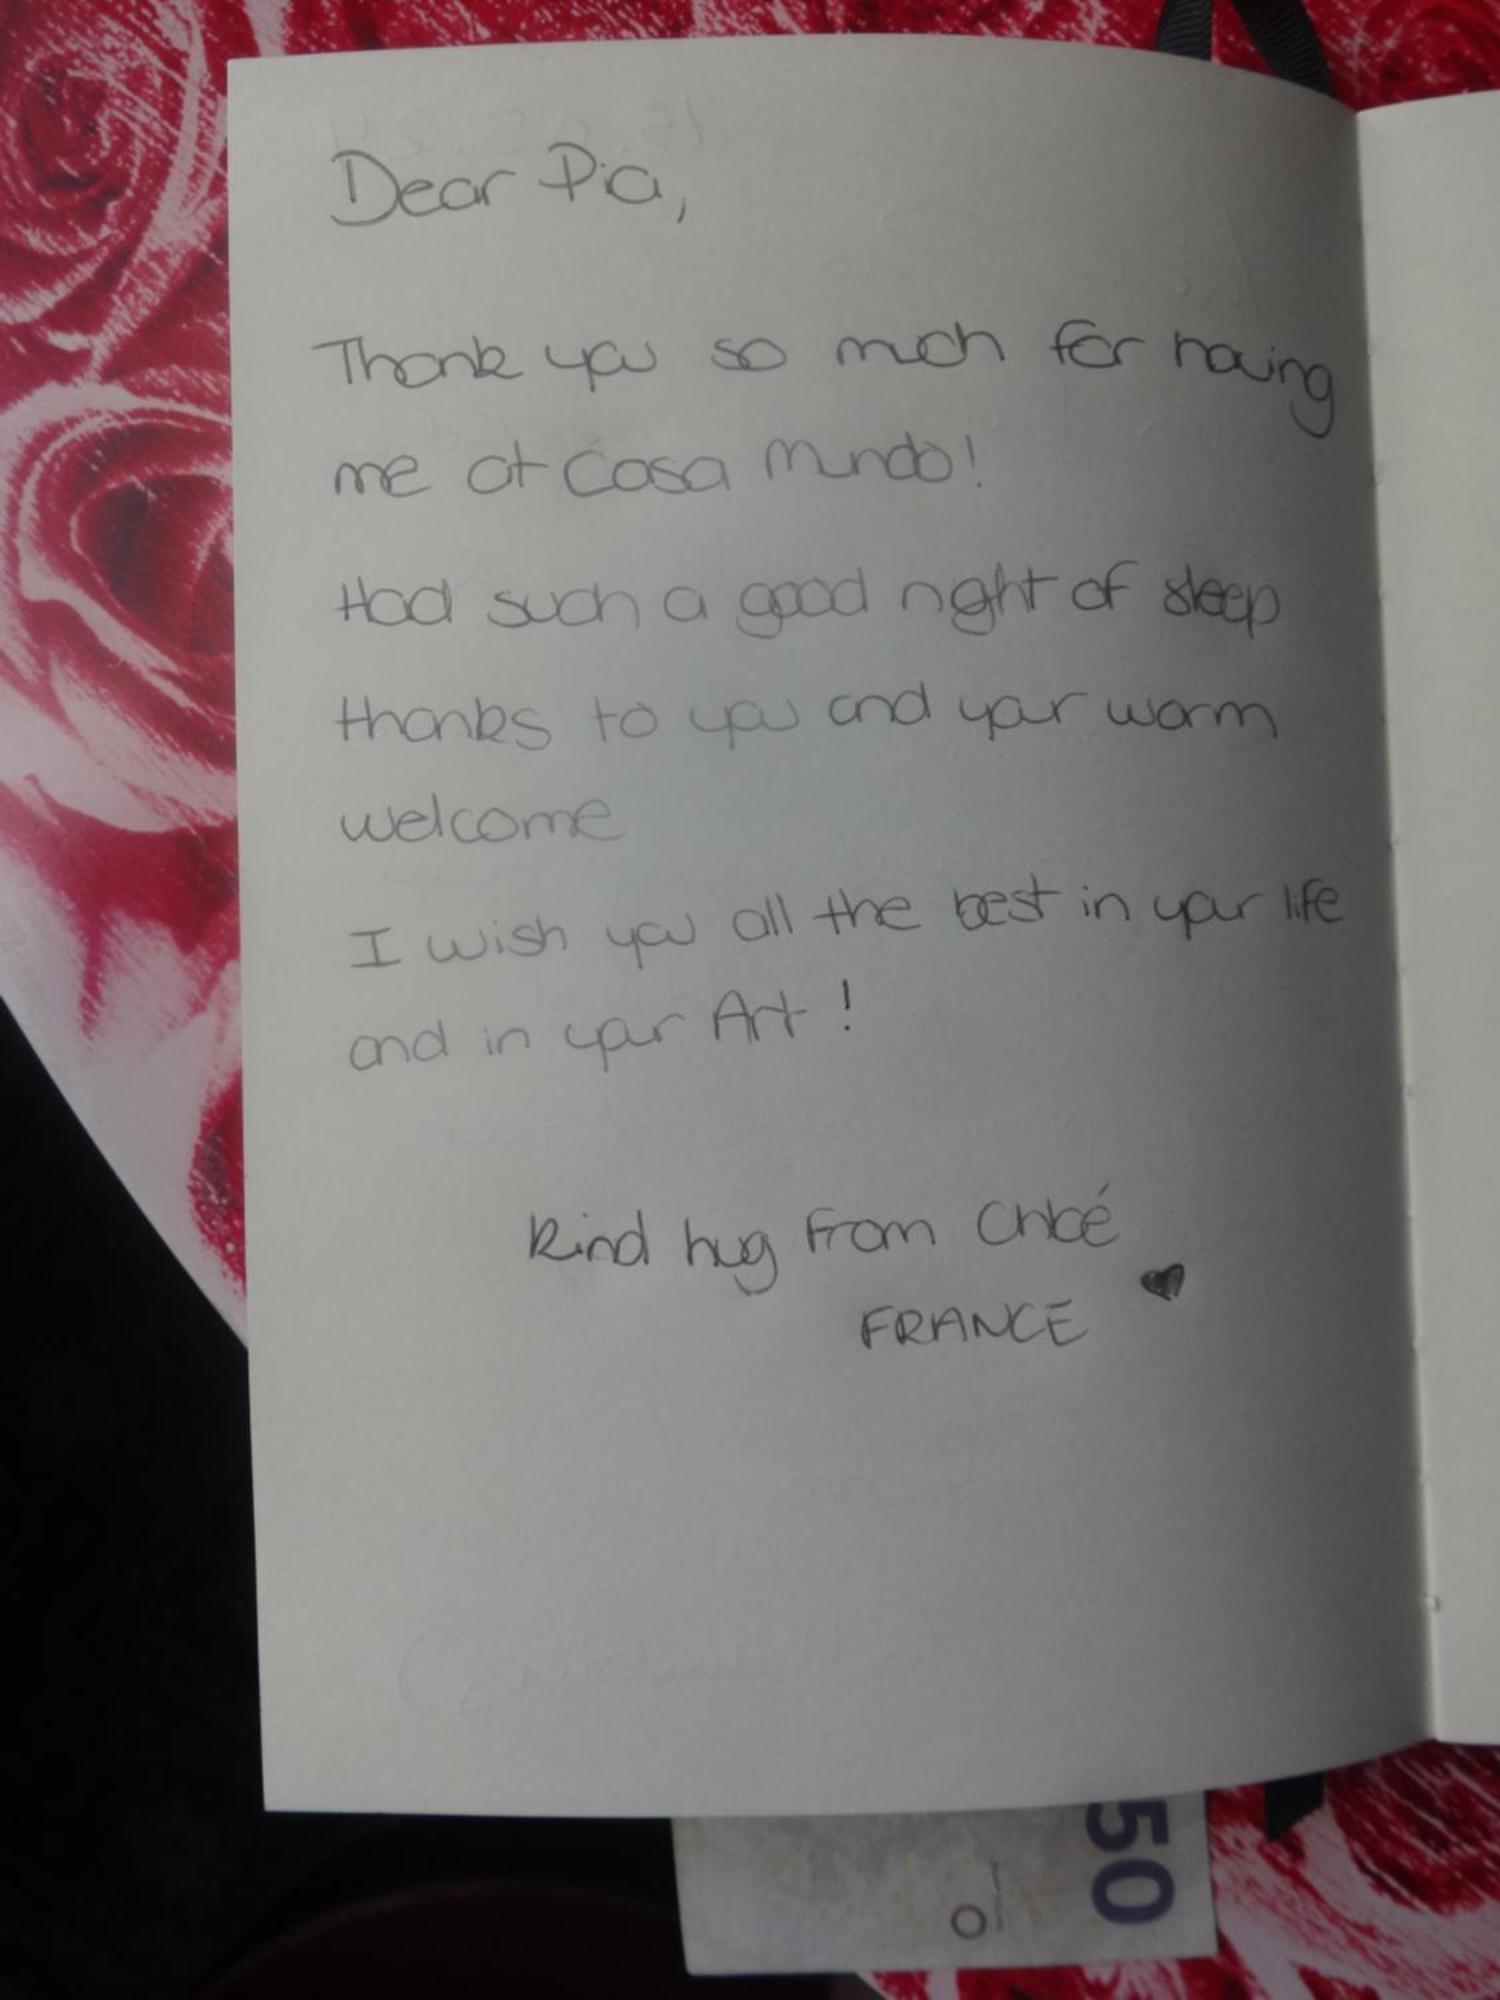 Dear Pia,
Thank you so much for having
me at Casa Mundo!
Had such a good night of sleep
thanks to you and your warm
welcome
I wish you all the best in your life
and in your Art !
Kind hug from Chloé
♥
FRANCE
50